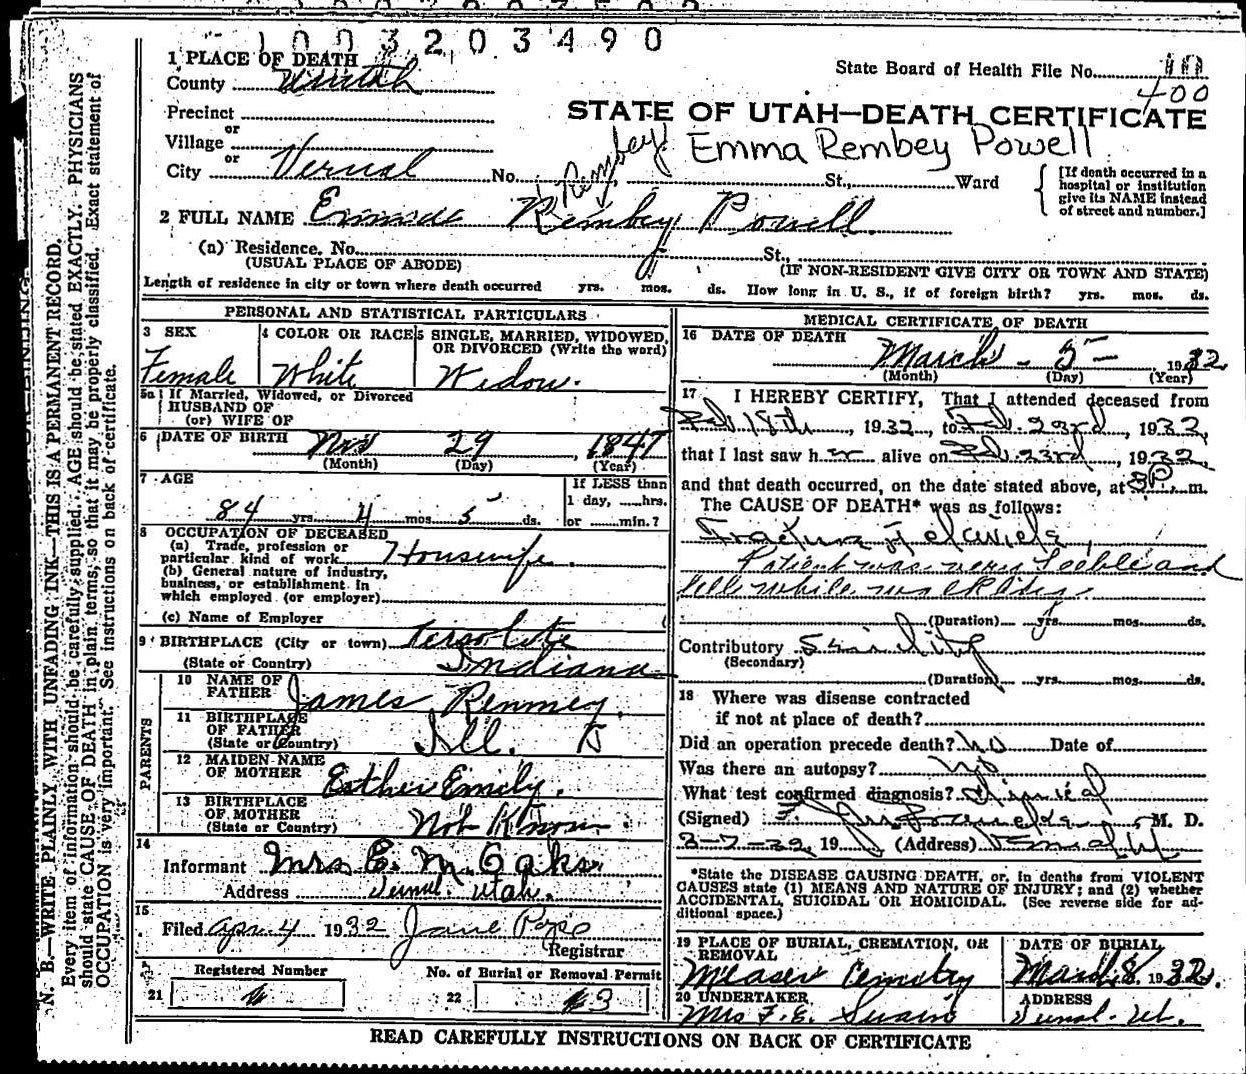 1003203490
1 PLACE OF DEATH
State Board of Health File No. 10
County Uintah
400
STATE OF UTAH—DEATH CERTIFICATE
Precinct
or
Village
Rembey Emma Rembey Powell
or
City Vernal No. St., Ward
[If death occurred in a
hospital or institution
give its NAME instead
of street and number.]
2 FULL NAME Emma Rembey Powell.
(a) Residence. No. St.,
(USUAL PLACE OF ABODE) (IF NON-RESIDENT GIVE CITY OR TOWN AND STATE)
Length of residence in city or town where death occurred yrs. mos. ds. How long in U. S., if of foreign birth? yrs. mos. ds.
PERSONAL AND STATISTICAL PARTICULARS
3 SEX
Female
4 COLOR OR RACE
White
5 SINGLE, MARRIED, WIDOWED,
OR DIVORCED (Write the word)
Widow.
5a If Married, Widowed, or Divorced
HUSBAND OF
(or) WIFE OF
6 DATE OF BIRTH Nov 29, 1847
(Month) (Day) (Year)
7 AGE
84 yrs. 4 mos. 5 ds.
If LESS than
1 day, hrs.
or min.?
8 OCCUPATION OF DECEASED
(a) Trade, profession or
particular kind of work Housewife.
(b) General nature of industry,
business, or establishment in
which employed (or employer)
(c) Name of Employer
9 BIRTHPLACE (City or town)
(State or Country) Indiana
PARENTS
10 NAME OF
FATHER James Renmey.
11 BIRTHPLACE
OF FATHER
(State or Country) Ill.
12 MAIDEN NAME
OF MOTHER Esther Emily.
13 BIRTHPLACE
OF MOTHER
(State or Country) Not Known
14
Informant Mrs E. M. Oaks.
Address Vernal. Utah.
15
Filed Apr 4 1932 Jane Pope
Registrar
Registered Number No. of Burial or Removal Permit
21 22 3
MEDICAL CERTIFICATE OF DEATH
16 DATE OF DEATH
March - 5 - 1932
(Month) (Day) (Year)
17 I HEREBY CERTIFY, That I attended deceased from
Feb 18th, 1932, to Feb. 23rd, 1932,
that I last saw her alive on Feb. 23rd, 1932,
and that death occurred, on the date stated above, at 3 P. m.
The CAUSE OF DEATH* was as follows:
Fracture of clavicle,
Patient was very feeble and
fell while walking
(Duration) yrs. mos. ds.
Contributory Senility
(Secondary)
(Duration) yrs. mos. ds.
18 Where was disease contracted
if not at place of death?
Did an operation precede death? No Date of
Was there an autopsy? No
What test confirmed diagnosis? Clinical
(Signed) M. D.
3-7-32, 19 (Address)
*State the DISEASE CAUSING DEATH, or, in deaths from VIOLENT
CAUSES state (1) MEANS AND NATURE OF INJURY; and (2) whether
ACCIDENTAL, SUICIDAL OR HOMICIDAL. (See reverse side for ad-
ditional space.)
19 PLACE OF BURIAL, CREMATION, OR
REMOVAL
Measer Cemetry
DATE OF BURIAL
March 8, 1932.
20 UNDERTAKER
Mrs F. E. Swain
ADDRESS
Vernal. Ut.
READ CAREFULLY INSTRUCTIONS ON BACK OF CERTIFICATE
N. B.—WRITE PLAINLY, WITH UNFADING INK—THIS IS A PERMANENT RECORD.
Every item of information should be carefully supplied. AGE should be stated EXACTLY. PHYSICIANS
should state CAUSE OF DEATH in plain terms, so that it may be properly classified. Exact statement of
OCCUPATION is very important. See instructions on back of certificate.